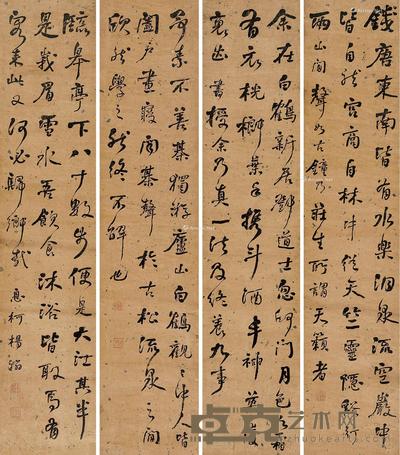 錢唐東南皆有水樂洞泉流空巖中
皆自然宮商自林中從天竺靈隱
兩山間聲如古鐘乃莊生所謂天籟者
余在白鶴新居鄧道士忽叩門月色如霜
有衣桄榔葉手攜斗酒丰神英發
裏出書授余乃真一法及修養九事
余素不善棊獨遊廬山白鶴觀觀中人皆
闔戶晝寢聞棊聲於古松流泉之間
欣然學之然終不解也
臨皋亭下八十數步便是大江其半
是峨眉雪水吾飲食沐浴皆取焉有
客來此又何必歸鄉哉 息柯楊翰
卓克艺术网